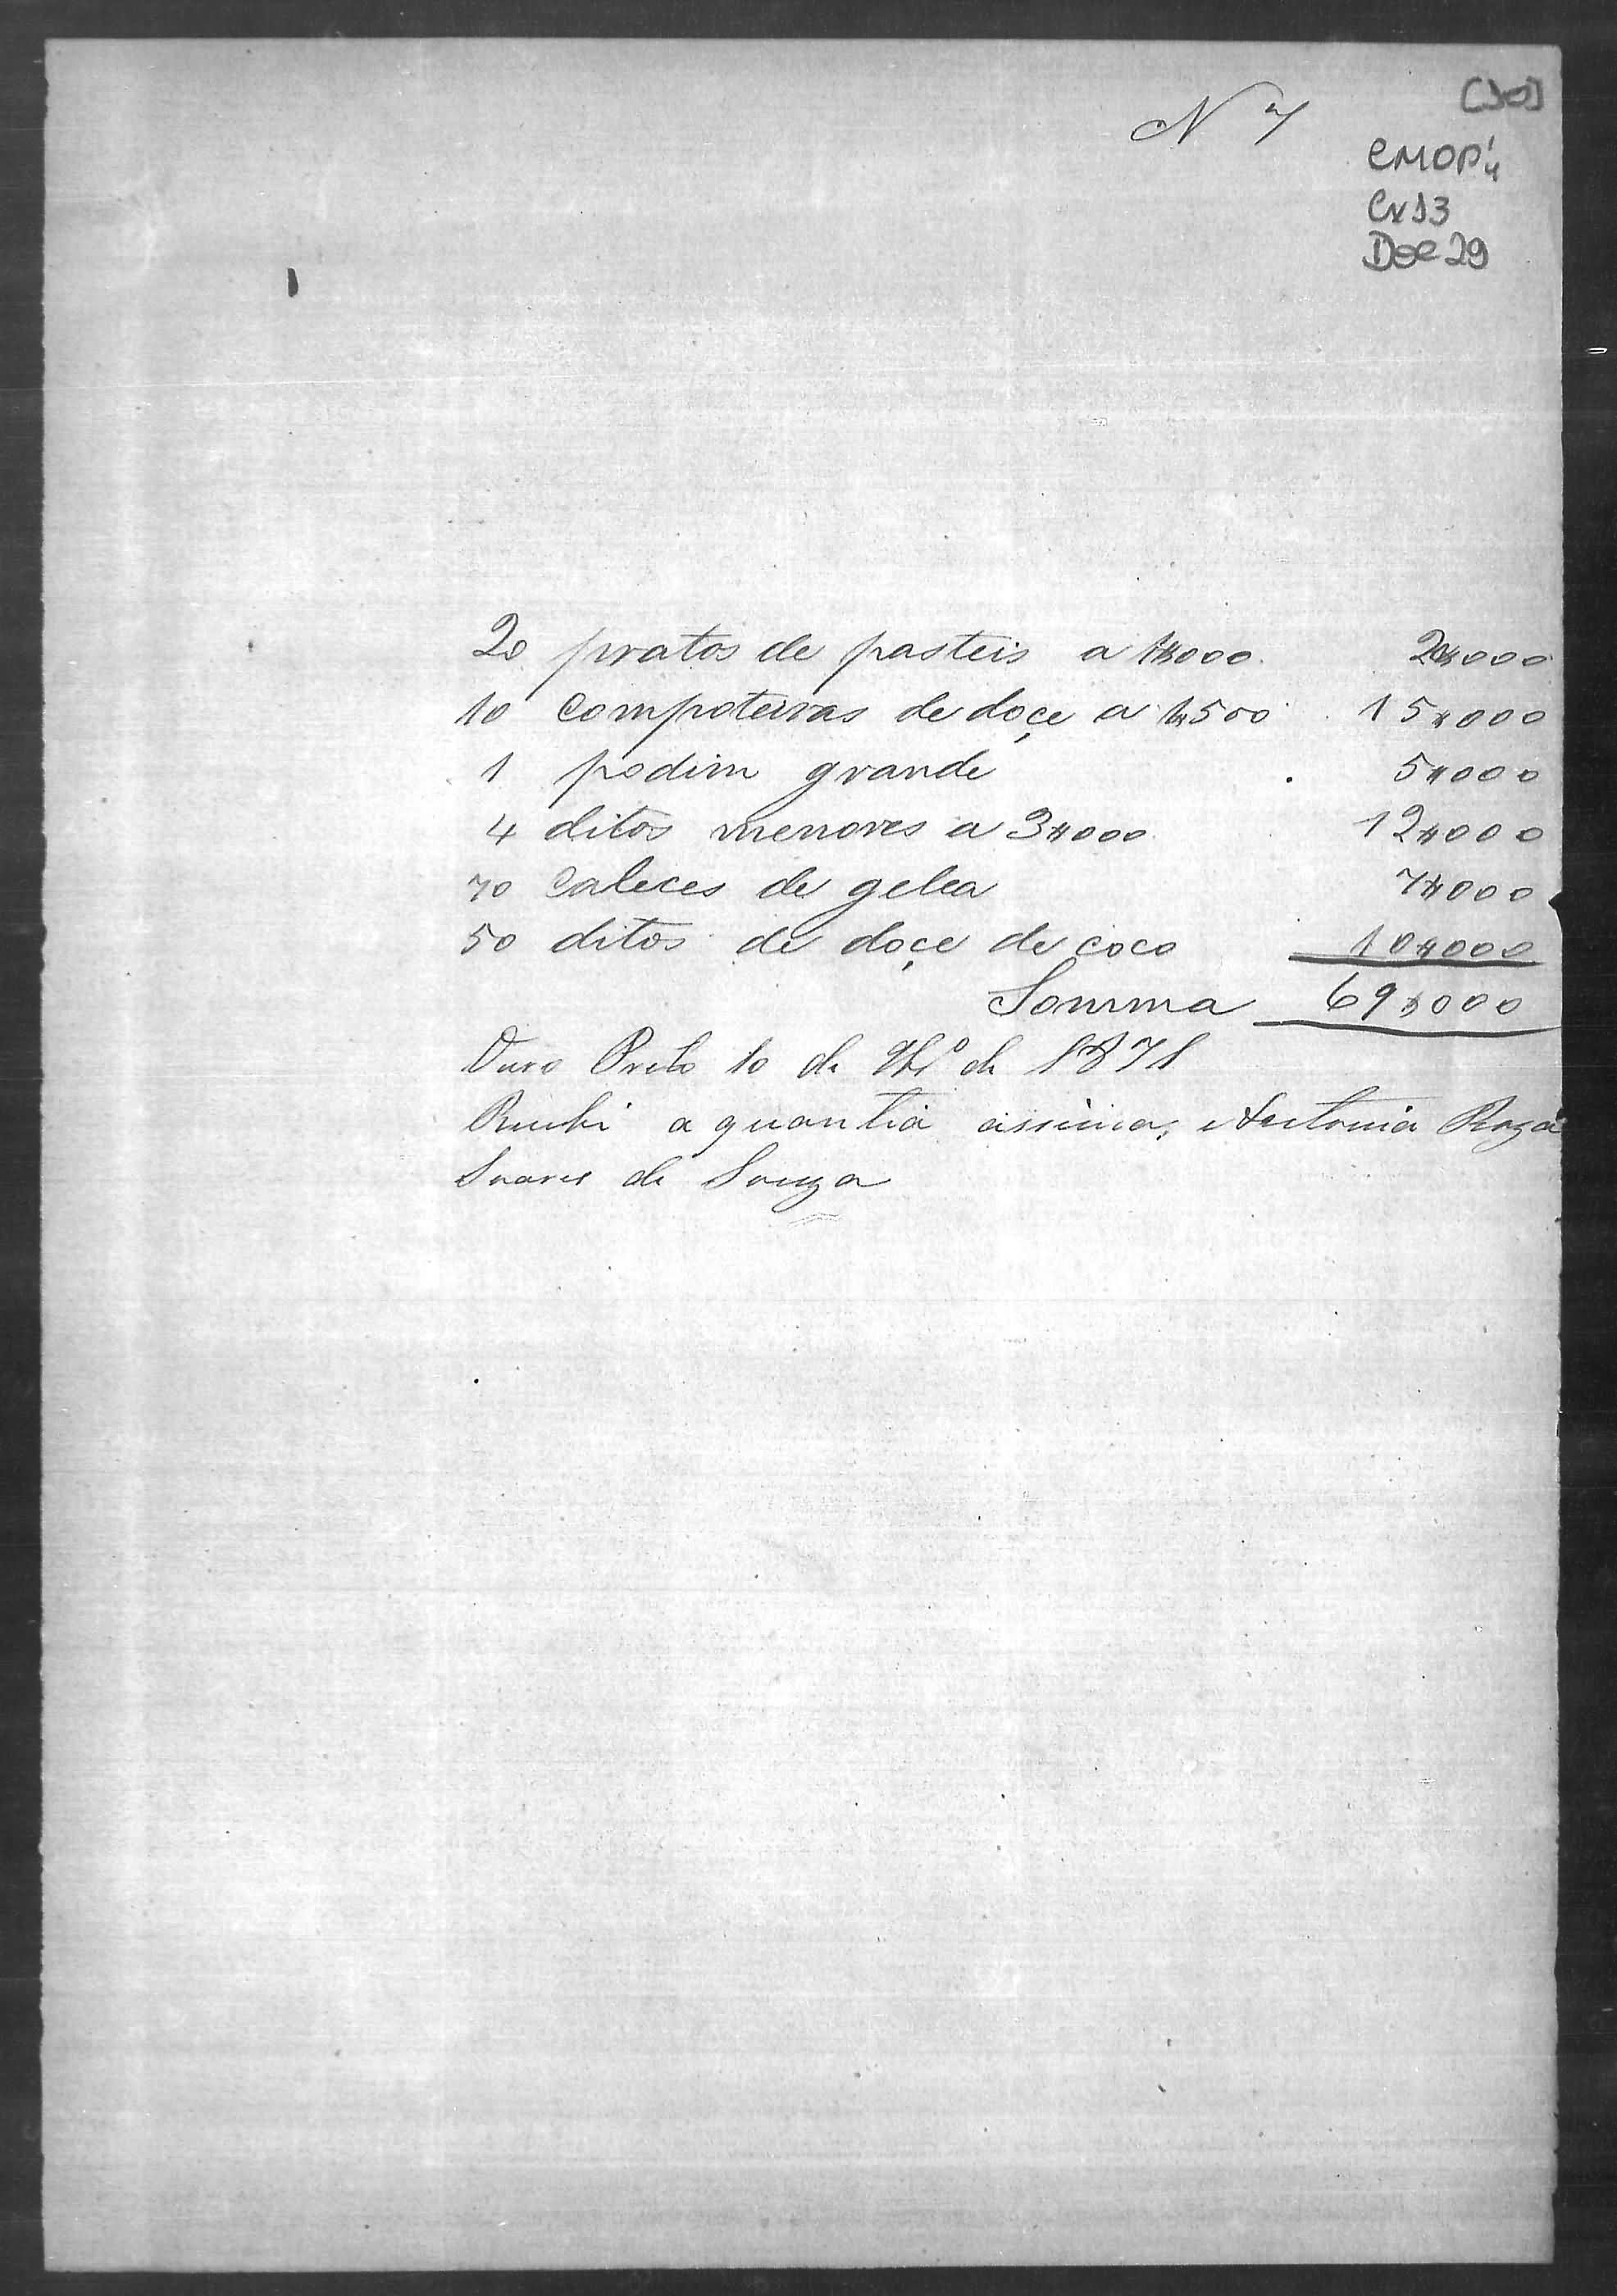 [30]
N 7
CMOP 4
Cx 13
Doc 29
20 pratos de pasteis a 1$000 20$000
10 Compoteiras de doçe a 1$500 15$000
1 podim grande 5$000
4 ditos menores a 3$000 12$000
70 Caleces de gelea 7$000
50 ditos de doçe de coco 10$000
Somma 69$000
Ouro Preto 10 de de 1871
Recebi a quantia assima, Antonia Roza
Soares de Souza